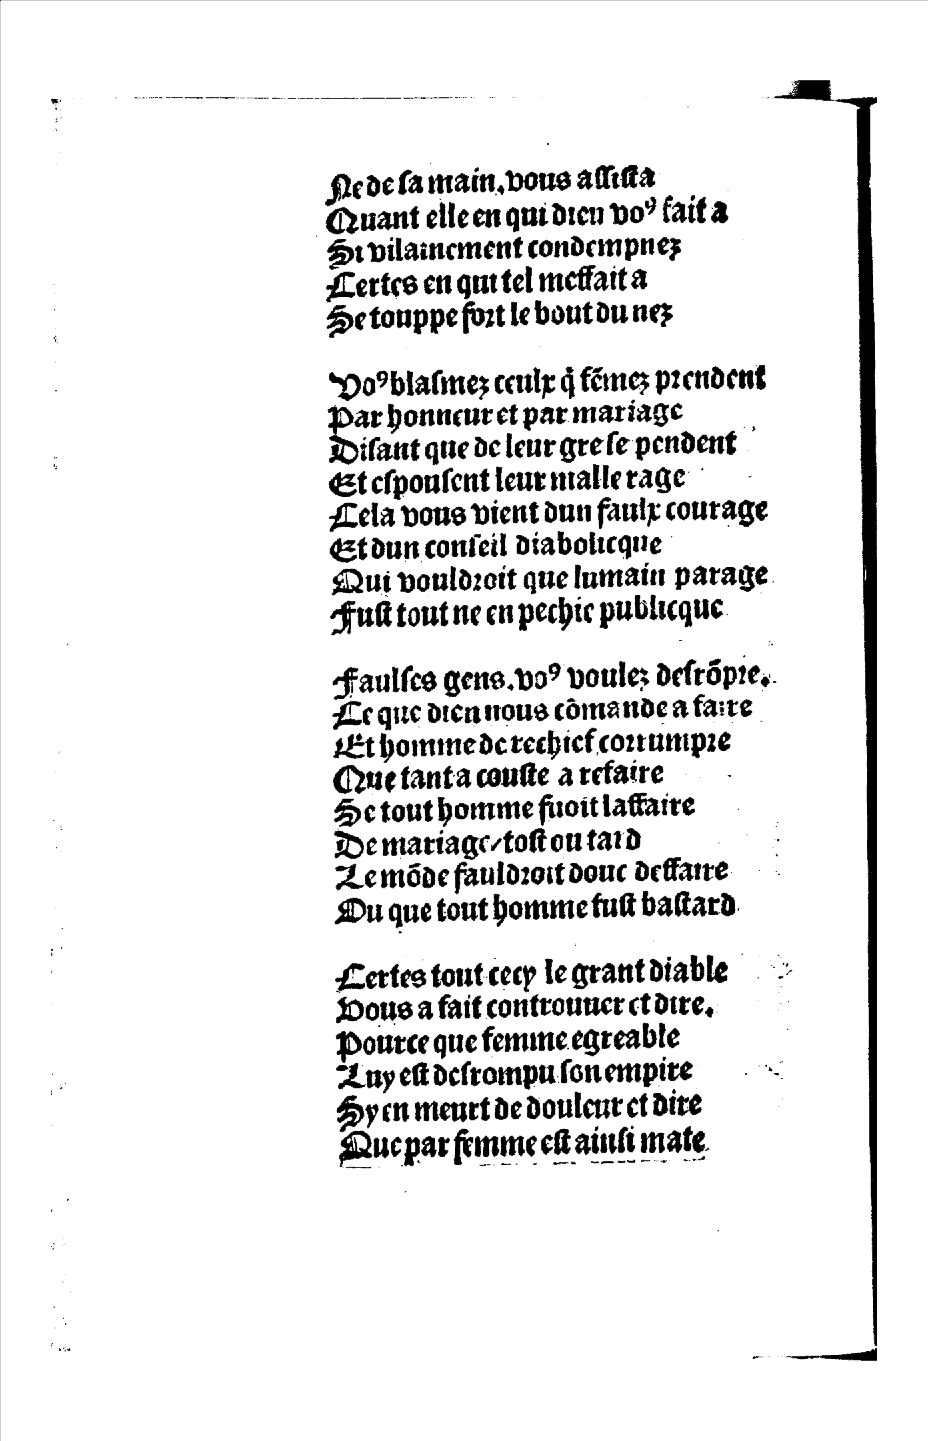 Ne de sa main. vous assista
Quant elle en qui dieu voꝰ fait a
Si vilainement condempnez
Certes en qui tel meffait a
Se touppe fort le bout du nez
Voꝰ blasmez ceulx q̄ fēmez prendent
Par honneur et par mariage
Disant que de leur gre se pendent
Et espousent leur malle rage
Cela vous vient dun faulx courage
Et dun conseil diabolicque
Qui vouldroit que lumain parage
Fust tout ne en pechie publicque
Faulses gens. voꝰ voulez desrōpre.
Ce que dieu nous cōmande a faire
Et homme de rechief corrumpre
Que tant a couste a refaire
Se tout homme fuoit laffaire
De mariage/ tost ou tard
Le mōde fauldroit donc deffaire
Ou que tout homme fust bastard
Certes tout cecy le grant diable
Vous a fait controuuer et dire.
Pource que femme egreable
Luy est desrompu son empire
Sy en meurt de douleur et dire
Que par femme est ainsi mate